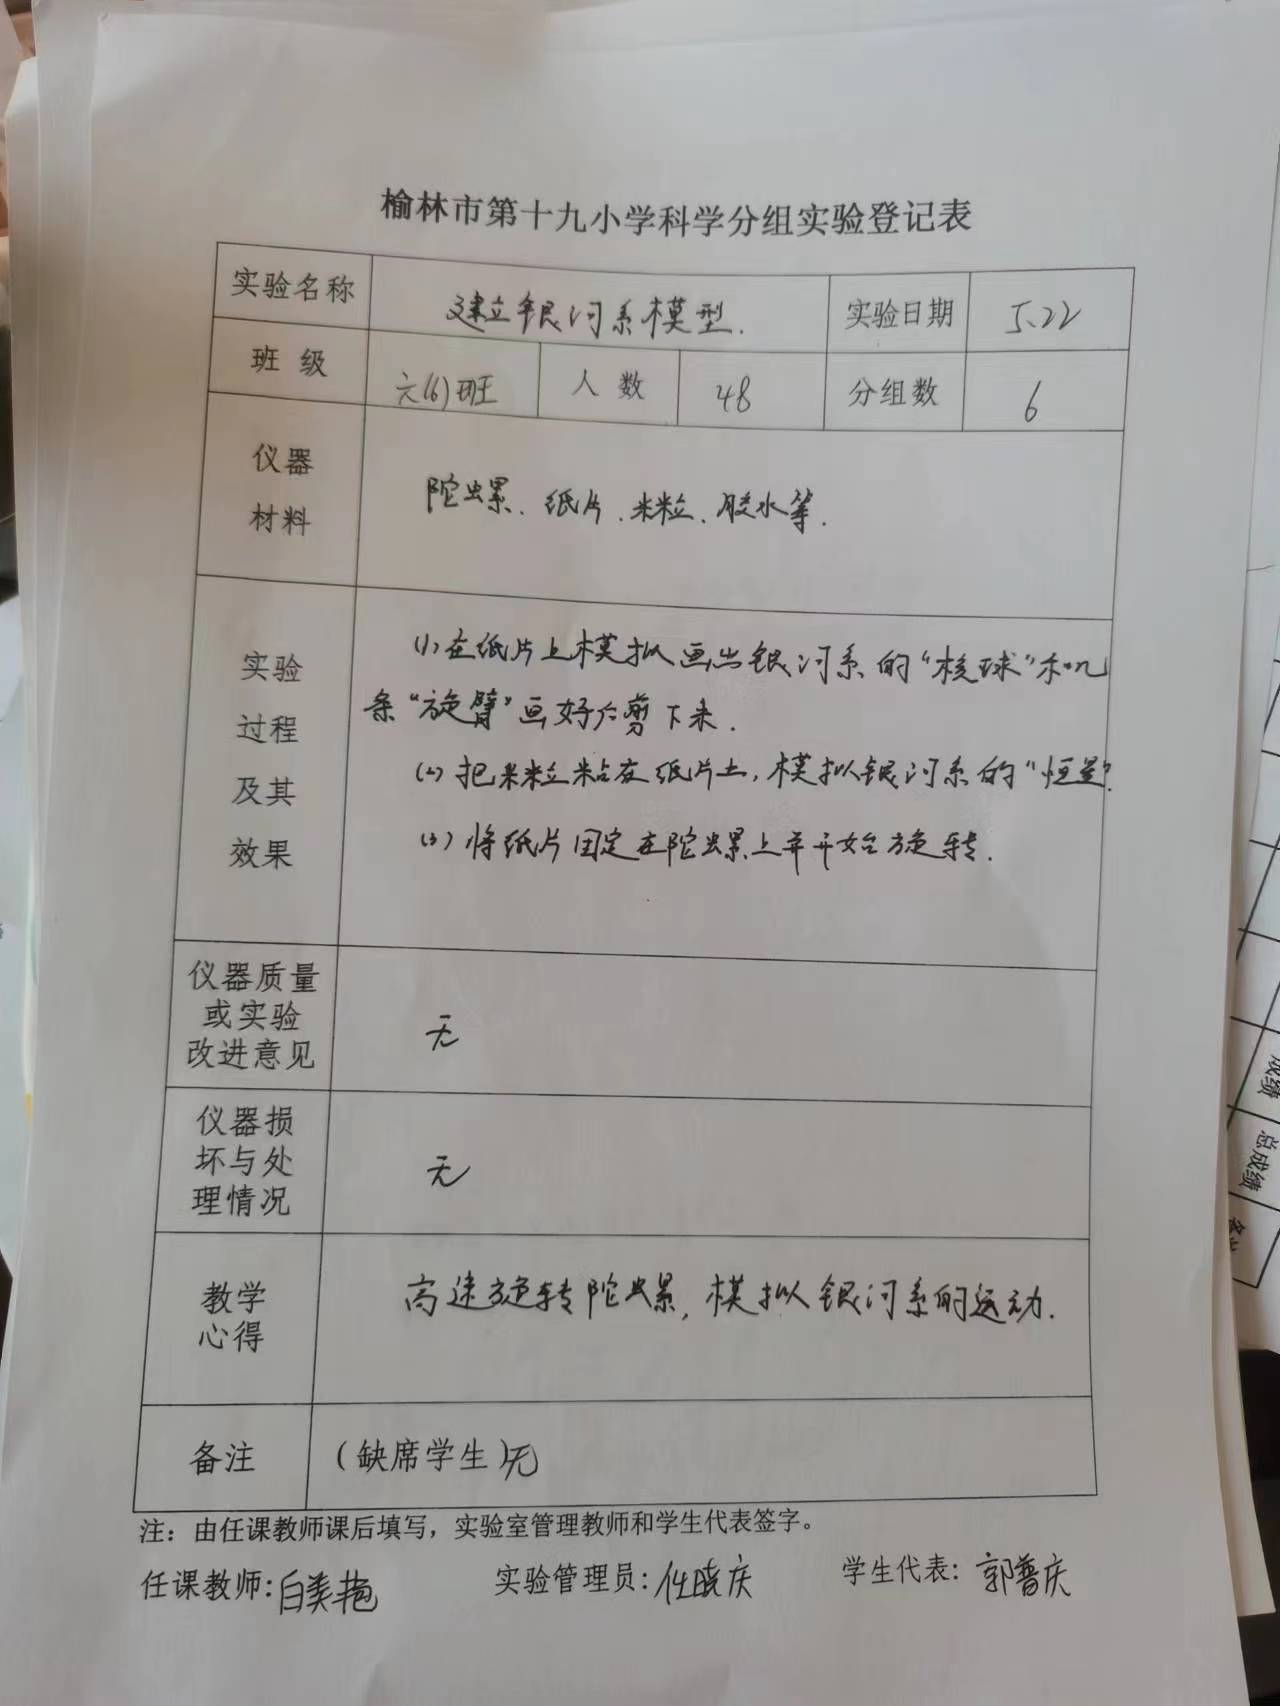 榆林市第十九小学科学分组实验登记表
实验名称 建立银河系模型. 实验日期 5.22
班 级 六(6)班 人 数 48 分组数 6
仪器
材料
陀螺、纸片、米粒、胶水等.
实验
过程
及其
效果
(1)在纸片上模拟画出银河系的“核球”和几
条“旋臂”画好后剪下来.
(2)把米粒粘在纸片上,模拟银河系的“恒星”.
(3)将纸片固定在陀螺上并开始旋转.
仪器质量
或实验
改进意见
无
仪器损
坏与处
理情况
无
教学
心得
高速旋转陀螺,模拟银河系的运动.
备注 (缺席学生)无
注:由任课教师课后填写,实验室管理教师和学生代表签字。
任课教师:白美艳 实验管理员:任晓庆 学生代表:郭普庆
成绩
总成绩